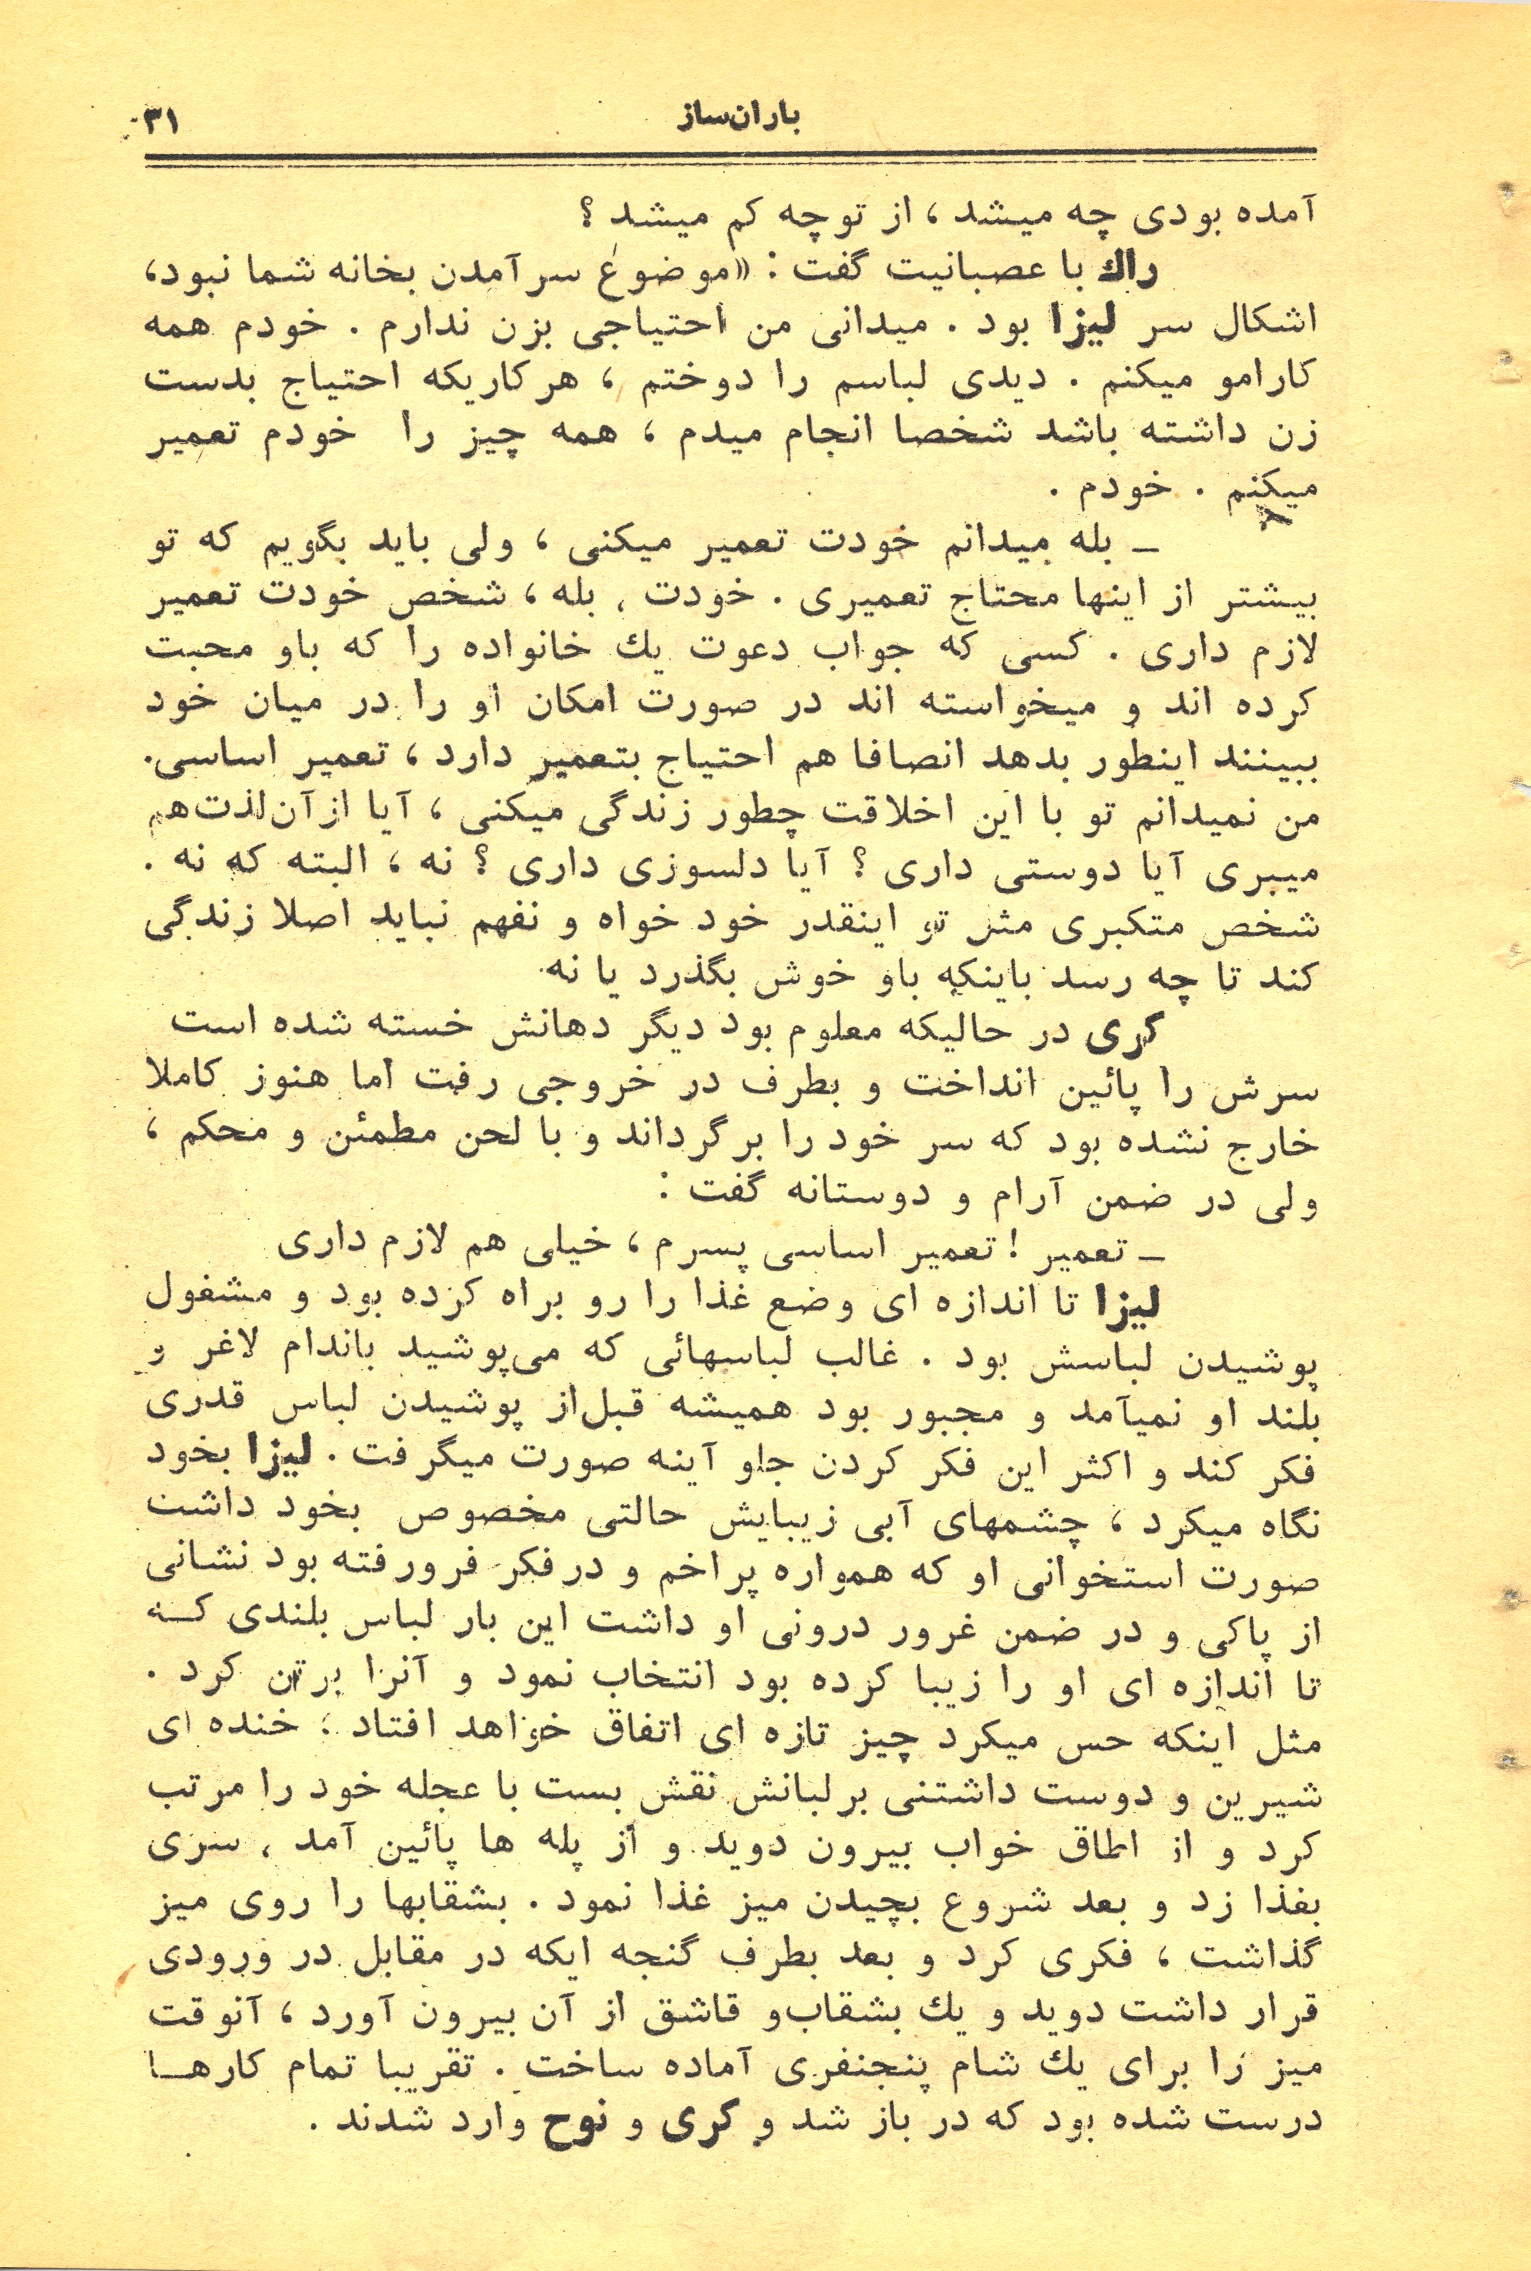 باران‌ساز
۳۱
آمده بودی چه میشد ، از تو چه کم میشد ؟
راك با عصبانیت گفت : «موضوع سر آمدن بخانه شما نبود،
اشکال سر لیزا بود . میدانی من احتیاجی بزن ندارم . خودم همه
کارامو میکنم . دیدی لباسم را دوختم ، هر کاریکه احتیاج بدست
زن داشته باشد شخصا انجام میدم ، همه چیز را خودم تعمیر
میکنم . خودم .
ـ بله میدانم خودت تعمیر میکنی ، ولی باید بگویم که تو
بیشتر از اینها محتاج تعمیری . خودت ، بله ، شخص خودت تعمیر
لازم داری . کسی که جواب دعوت یك خانواده را که باو محبت
کرده اند و میخواسته اند در صورت امکان او را در میان خود
ببینند اینطور بدهد انصافا هم احتیاج بتعمیر دارد ، تعمیر اساسی.
من نمیدانم تو با این اخلاقت چطور زندگی میکنی ، آیا از آن لذت هم
میبری آیا دوستی داری ؟ آیا دلسوزی داری ؟ نه ، البته که نه .
شخص متکبری مثل تو اینقدر خود خواه و نفهم نباید اصلا زندگی
کند تا چه رسد باینکه باو خوش بگذرد یا نه
کری در حالیکه معلوم بود دیگر دهانش خسته شده است
سرش را پائین انداخت و بطرف در خروجی رفت اما هنوز کاملا
خارج نشده بود که سر خود را بر گرداند و با لحن مطمئن و محکم ،
ولی در ضمن آرام و دوستانه گفت :
ـ تعمیر ! تعمیر اساسی پسرم ، خیلی هم لازم داری
لیزا تا اندازه ای وضع غذا را رو براه کرده بود و مشغول
پوشیدن لباسش بود . غالب لباسهائی که می‌پوشید باندام لاغر و
بلند او نمیآمد و مجبور بود همیشه قبل از پوشیدن لباس قدری
فکر کند و اکثر این فکر کردن جلو آینه صورت میگرفت . لیزا بخود
نگاه میکرد ، چشمهای آبی زیبایش حالتی مخصوص بخود داشت
صورت استخوانی او که همواره پر اخم و در فکر فرو رفته بود نشانی
از پاکی و در ضمن غرور درونی او داشت این بار لباس بلندی کـه
تا اندازه ای او را زیبا کرده بود انتخاب نمود و آنرا بر تن کرد .
مثل اینکه حس میکرد چیز تازه ای اتفاق خواهد افتاد ؛ خنده ای
شیرین و دوست داشتنی بر لبانش نقش بست با عجله خود را مرتب
کرد و از اطاق خواب بیرون دوید و از پله ها پائین آمد ، سری
بغذا زد و بعد شروع بچیدن میز غذا نمود . بشقابها را روی میز
گذاشت ، فکری کرد و بعد بطرف گنجه ایکه در مقابل در ورودی
قرار داشت دوید و یك بشقاب و قاشق از آن بیرون آورد ، آنوقت
میز را برای یك شام پنجنفری آماده ساخت . تقریبا تمام کارهـا
درست شده بود که در باز شد و کری و نوح وارد شدند .